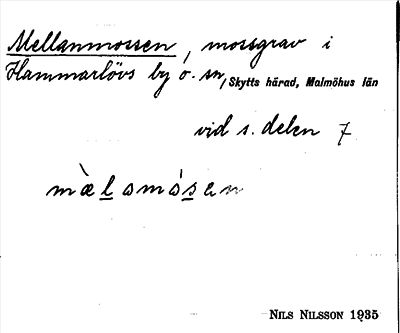 Mellanmossen, mossgrav i
Hammarlövs by o. sn, Skytts härad, Malmöhus län
vid s. delen 7
mæ̀lamósen
NILS NILSSON 1935